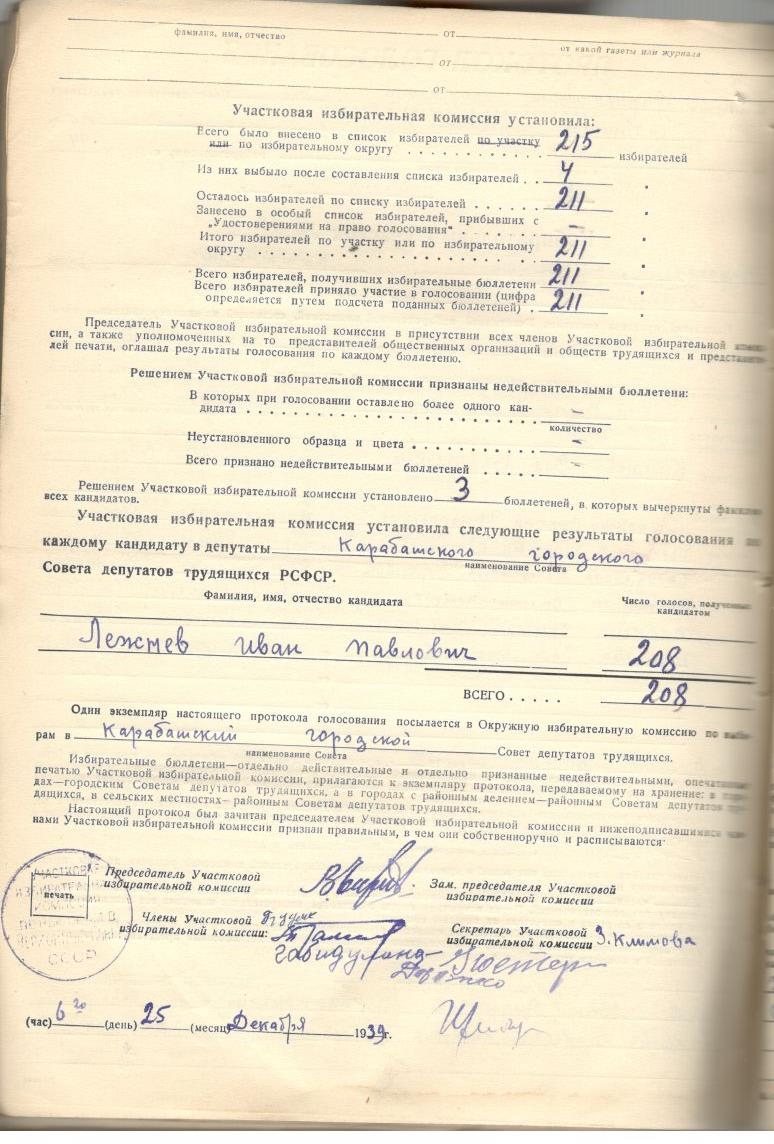 фамилия, имя, отчество
от
от какой газеты или журнала
от
от
Участковая избирательная комиссия установила:
Всего было внесено в список избирателей по участку
или по избирательному округу . . . . . . . . . . . . 215 избирателей
Из них выбыло после составления списка избирателей . . 4 "
Осталось избирателей по списку избирателей . . . . . . 211 "
Занесено в особый список избирателей, прибывших с
„Удостоверениями на право голосования“ . . . . . . . — "
Итого избирателей по участку или по избирательному
округу . . . . . . . . . . . . . . . . . . . . . . 211 "
Всего избирателей, получивших избирательные бюллетени 211 "
Всего избирателей приняло участие в голосовании (цифра
определяется путем подсчета поданных бюллетеней) . 211 "
Председатель Участковой избирательной комиссии в присутствии всех членов Участковой избирательной
сии, а также уполномоченных на то представителей общественных организаций и обществ трудящихся и
лей печати, оглашал результаты голосования по каждому бюллетеню.
Решением Участковой избирательной комиссии признаны недействительными бюллетени:
В которых при голосовании оставлено более одного кан-
дидата . . . . . . . . . . . . . . . . . . . . . . —
количество
Неустановленного образца и цвета . . . . . . . . . . —
Всего признано недействительными бюллетеней . . . . . —
Решением Участковой избирательной комиссии установлено 3 бюллетеней, в которых вычеркнуты
всех кандидатов.
Участковая избирательная комиссия установила следующие результаты голосования
каждому кандидату в депутаты Карабашского городского
наименование Совета
Совета депутатов трудящихся РСФСР.
Фамилия, имя, отчество кандидата
Число голосов, полученных
кандидатом
Лежнев Иван Павлович 208
ВСЕГО . . . . . 208
Один экземпляр настоящего протокола голосования посылается в Окружную избирательную комиссию по
рам в Карабашский городской Совет депутатов трудящихся.
наименование Совета
Избирательные бюллетени—отдельно действительные и отдельно признанные недействительными,
печатью Участковой избирательной комиссии, прилагаются к экземпляру протокола, передаваемому на хранение: в
дах—городским Советам депутатов трудящихся, а в городах с районным делением—районным Советам депутатов
дящихся, в сельских местностях—районным Советам депутатов трудящихся.
Настоящий протокол был зачитан председателем Участковой избирательной комиссии и нижеподписавшимися
нами Участковой избирательной комиссии признан правильным, в чем они собственноручно и расписываются
УЧАСТКОВАЯ
ИЗБИРАТЕЛЬНАЯ
КОМИССИЯ
СССР
печать
Председатель Участковой
избирательной комиссии
Зам. председателя Участковой
избирательной комиссии
Члены Участковой
избирательной комиссии:
Габидулина
Секретарь Участковой
избирательной комиссии З. Климова
(час) 6 20 (день) 25 (месяц) Декабря 1939 г.